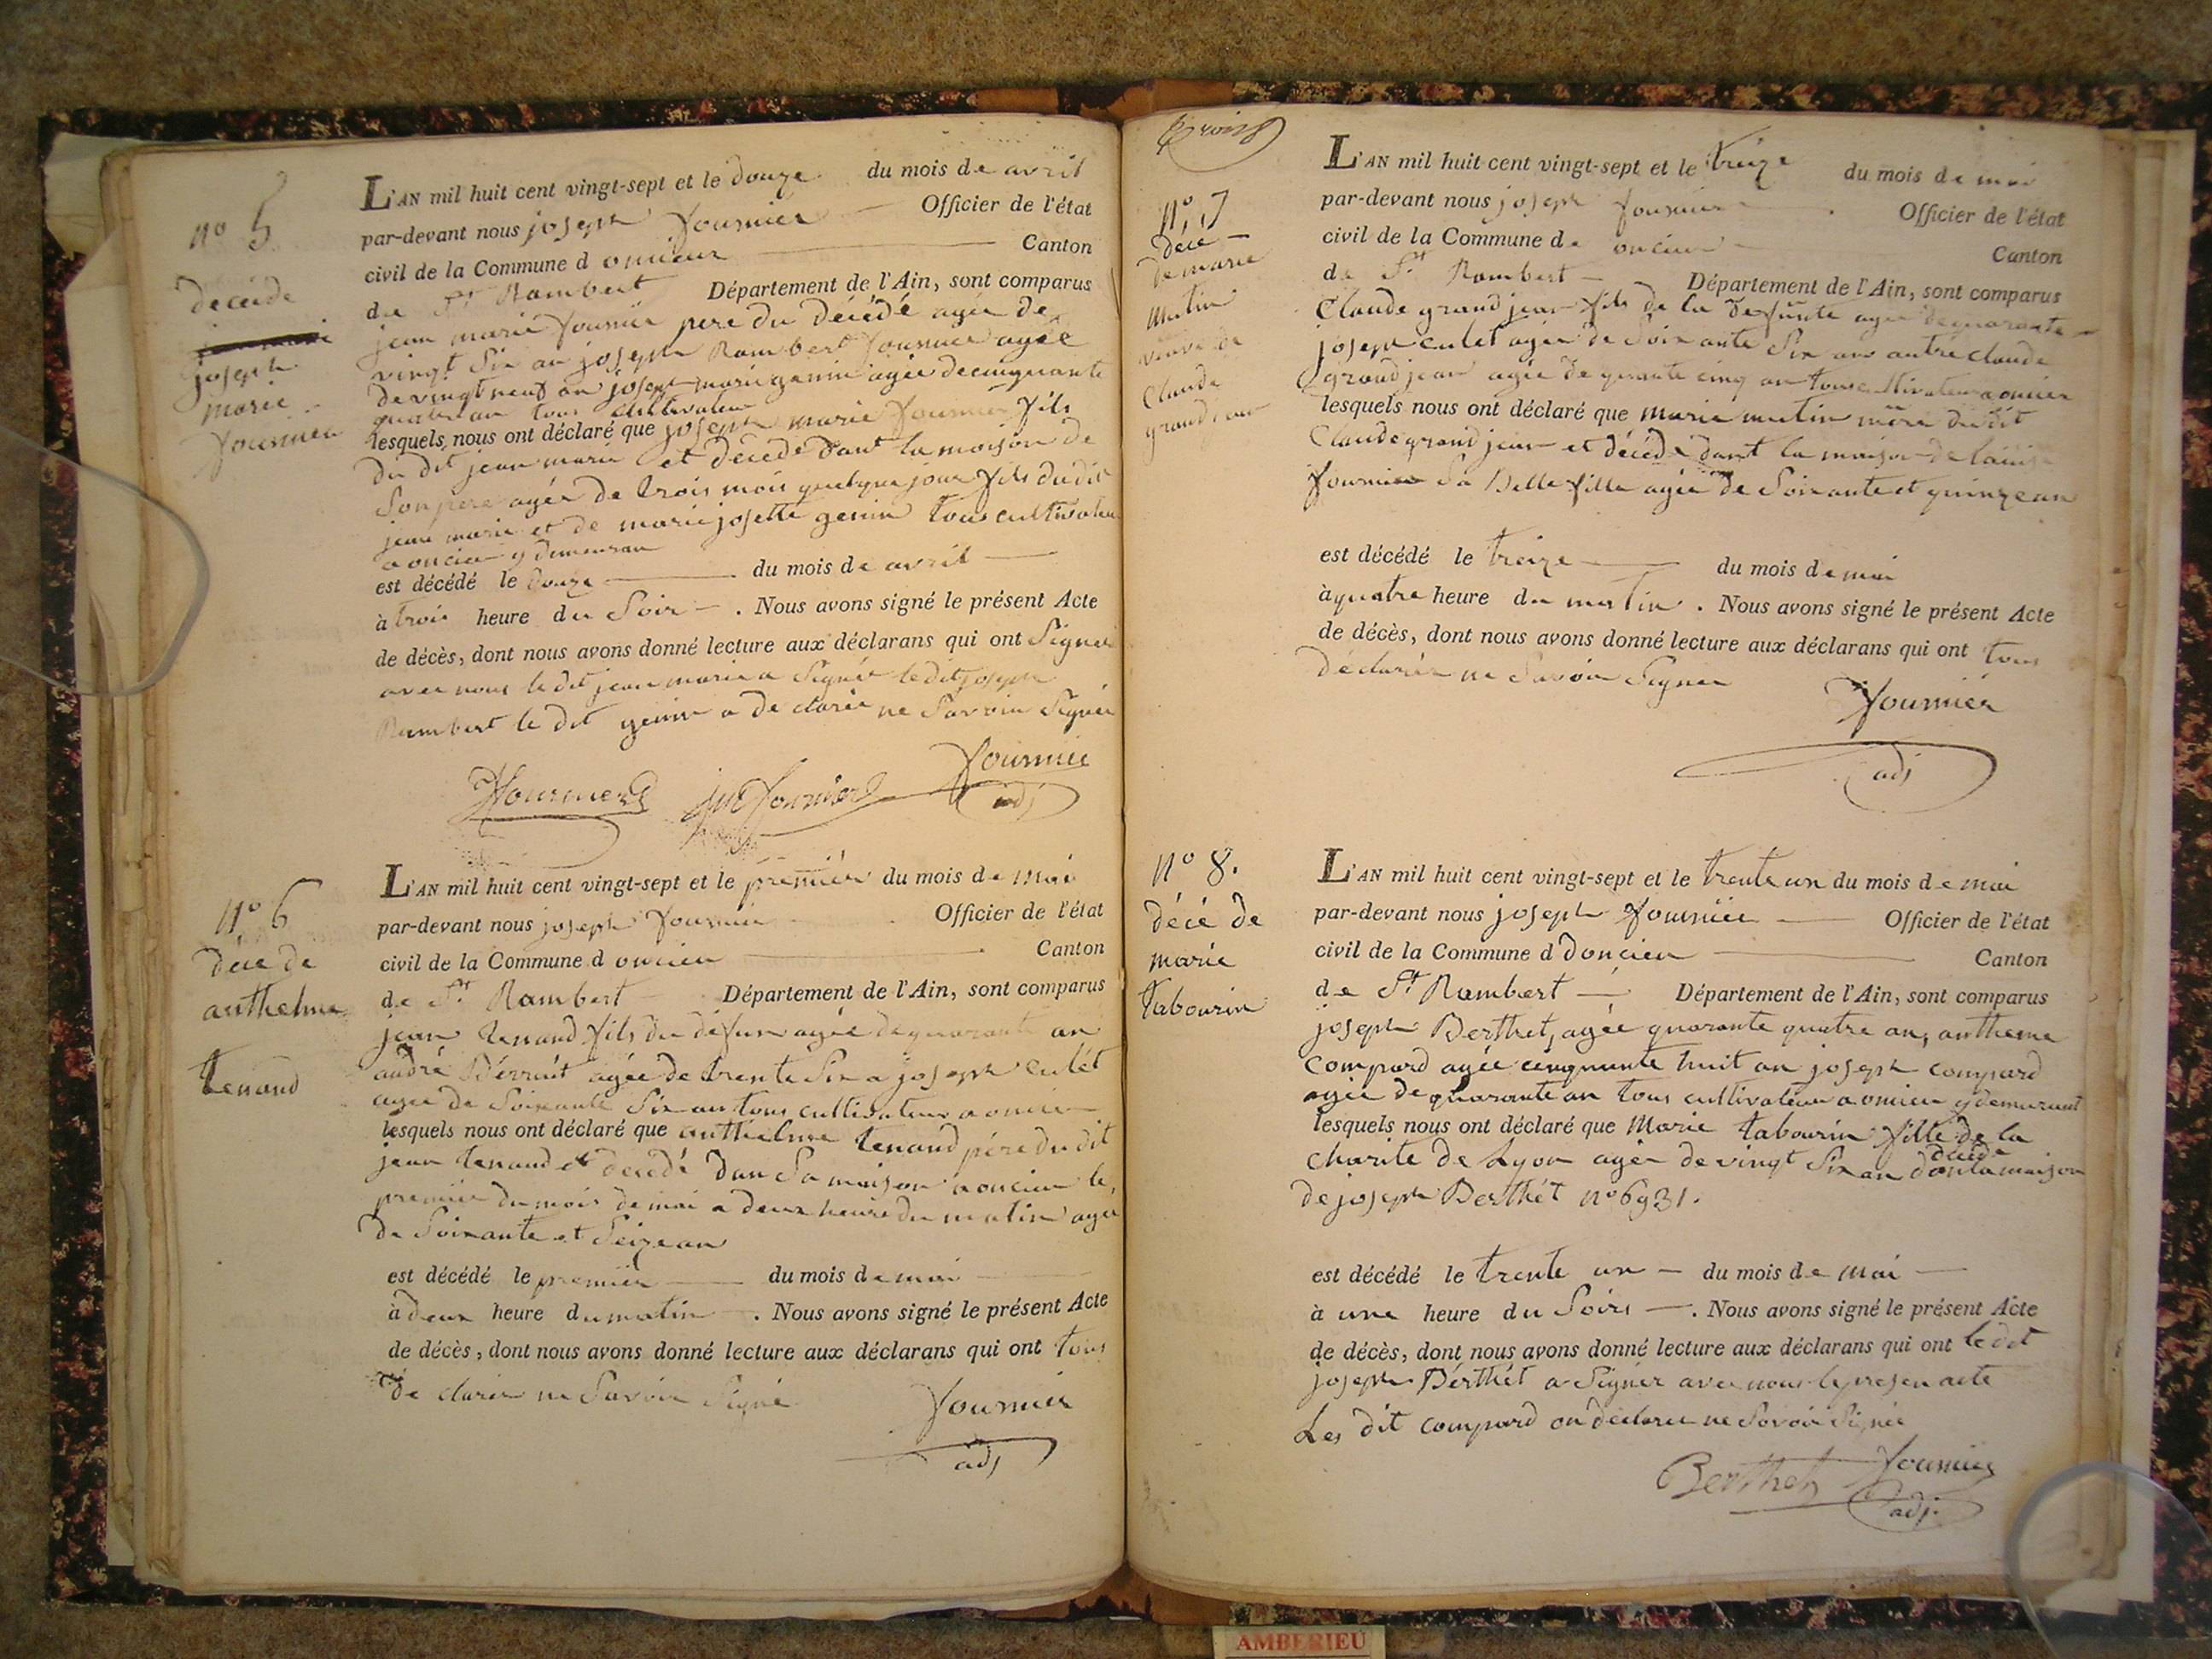 nº 5
décéde
joseph
marie
fournier
L'AN mil huit cent vingt-sept et le douze du mois de avril
par-devant nous joseph fournier Officier de l'état
civil de la Commune d oncieux Canton
de St Rambert Département de l'Ain, sont comparus
jean marie fournier pere du décédé agée de
vingt six an joseph Rambert fournier agée
de vingt neuf an joseph marie genin agée de cinquante
quatre an tous cultivateur
lesquels nous ont déclaré que joseph marie fournier fils
du dit jean marie et décédé dant la maison de
son pere agée de trois mois quelque jour fils du dit
jean marie et de marie josette genin tous cultivateur
a oncieu y demeuran
est décédé le douze du mois de avril
à trois heure du soir . Nous avons signé le présent Acte
de décès, dont nous avons donné lecture aux déclarans qui ont signer
avec nous le dit jean marie a signée le dit joseph
Rambert le dit genin a de clarée ne savoir signée
fournier
fournier
jm fournier
adj
nº 6
décé de
anthelme
tenand
L'AN mil huit cent vingt-sept et le premiér du mois de mai
par-devant nous joseph fournier Officier de l'état
civil de la Commune d oncieu Canton
de St Rambert Département de l'Ain, sont comparus
jean tenand fils du défun agée de quarante an
andré Dérrué agée de trente six a joseph culét
agée de soixante six an tous cultivateur a oncieu
lesquels nous ont déclaré que anthelme tenand pére du dit
jean tenand et decedé dan sa maison a oncieu le
premier du mois de mai a deux heure du matin agée
de soixante et seize an
est décédé le premiér du mois de mai
à deux heure du matin . Nous avons signé le présent Acte
de décès, dont nous avons donné lecture aux déclarans qui ont tous
dé clarer ne savoir signé
fournier
adj
trois
nº 7
décé
de marie
mutin
veuve de
Claude
grandjean
L'AN mil huit cent vingt-sept et le treize du mois de mai
par-devant nous joseph fournier Officier de l'état
civil de la Commune de oncieu Canton
de St Rambert Département de l'Ain, sont comparus
Claude grandjean fils de la defunte agée de quarante
joseph culet agée de soixante six an autre claude
grandjean agée de quarante cinq an tous cultivateur a oncieu
lesquels nous ont déclaré que marie mutin mére du dit
Claude grandjean et décédé dant la maison de louise
fournier sa Belle fille agée de soixante et quinze an
est décédé le treize du mois de mai
à quatre heure du matin . Nous avons signé le présent Acte
de décès, dont nous avons donné lecture aux déclarans qui ont tous
déclarér ne savoir signer
fourniér
adj
nº 8.
décé de
marie
tabourin
L'AN mil huit cent vingt-sept et le trente un du mois de mai
par-devant nous joseph fournier Officier de l'état
civil de la Commune d Doncieu Canton
de St Rambert Département de l'Ain, sont comparus
joseph Berthet, agée quarante quatre an, antheme
compard agée cinquante huit an joseph compard
agée de quarante an tous cultivateur a oncieu y demurant
lesquels nous ont déclaré que Marie tabourin fille de la
charite de Lyon agée de vingt six an décédé dan la maison
de joseph Berthét nº 6931.
est décédé le trente un du mois de mai
à une heure du soirs . Nous avons signé le présent Acte
de décès, dont nous avons donné lecture aux déclarans qui ont le dit
joseph Bérthét a signér avec nous le presen acte
Les dit compard on declaree ne savoir signée
Berthet fournier
adj.
AMBERIEU